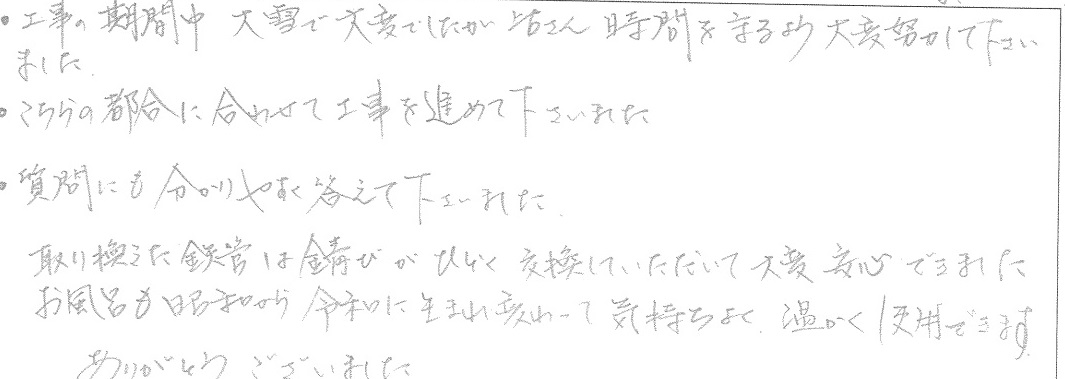 ・工事の期間中 大雪で大変でしたが皆さん 時間を守るよう大変努力して下さい
ました.
・こちらの都合に合わせて工事を進めて下さいました
・質問にも分かりやすく答えて下さいました.
取り換えた鉄管は錆びがひどく 交換していただいて大変安心できました
お風呂も昭和から令和に生まれ変わって気持ちよく、温かく使用できます.
ありがとうございました